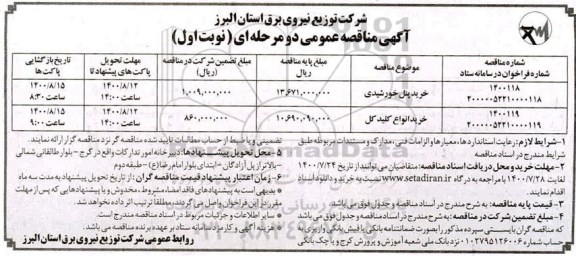 شرکت توزیع نیروی برق استان البرز
آگهی مناقصه عمومی دو مرحله ای (نوبت اول)
شماره مناقصه
شماره فراخوان در سامانه ستاد
موضوع مناقصه
مبلغ پایه مناقصه
ریال
مبلغ تضمین شرکت در مناقصه
(ریال)
مهلت تحویل
پاکت های پیشنهاد تا
تاریخ بازگشایی
پاکت ها
۱۴۰۰۱۱۸
۲۰۰۰۰۰۵۳۲۱۰۰۰۰۱۱۸
خرید پنل خورشیدی
۱۳,۶۷۱,۰۰۰,۰۰۰
۱,۰۰۹,۰۰۰,۰۰۰
۱۴۰۰/۸/۱۲
ساعت ۱۴:۰۰
۱۴۰۰/۸/۱۵
ساعت ۸:۳۰
۱۴۰۰۱۱۹
۲۰۰۰۰۰۵۳۲۱۰۰۰۱۱۹
خرید انواع کلید کل
۱۰,۶۹۰,۰۹۰,۰۰۰
۸۶۰,۰۰۰,۰۰۰
۱۴۰۰/۸/۱۲
ساعت ۱۴:۰۰
۱۴۰۰/۸/۱۵
ساعت ۹:۰۰
۱- شرایط لازم: رعایت استاندارد ها، معیارها و الزامات فنی، مدارک و مستندات مربوطه طبق
شرایط مندرج در اسناد مناقصه
۲- مهلت خرید و محل دریافت اسناد مناقصه: متقاضیان می توانند از تاریخ ۱۴۰۰/۷/۲۴
لغایت ۱۴۰۰/۷/۲۸ با مراجعه به درگاه www.setadiran.ir نسبت به خرید و دانلود اسناد
اقدام نمایند.
۳- قیمت پایه مناقصه: به شرح مندرج در اسناد مناقصه و جدول فوق می باشد
۴- مبلغ تضمین شرکت در مناقصه: به شرح مندرج در اسناد مناقصه و جدول فوق می باشد
که مناقصه گران بایستی سپرده مذکور را بصورت ضمانتنامه بانکی یا فیش بانکی واریزی به
حساب شماره ۰۱۰۲۷۹۵۱۲۶۰۰۶ نزد بانک ملی شعبه آموزش و پرورش کرج و یا چک بانکی
تضمینی و یا خالص از حساب مطالبات تایید شده مناقصه گر نزد مناقصه گزار ارائه نمایند.
۵- محل تحویل پیشنهادها: دبیرخانه امور تدارکات واقع در کرج - بلوار طالقانی شمالی
- بالاتر از پل آزادگان - ابتدای بلوار امام رضا (ع) - طبقه دوم
۶- زمان اعتبار پیشنهاد قیمت مناقصه گران: از تاریخ تحویل پیشنهاد به مدت سه ماه
* بدیهی است به پیشنهادهای فاقد امضاء، مشروط، مخدوش و یا پیشنهادهایی که پس از مهلت
مقرر در این فراخوان واصل می گردند، مطلقا ترتیب اثر داده نخواهد شد.
* سایر اطلاعات و جزئیات مربوط در اسناد مناقصه مندرج است.
* هزینه آگهی و کارمزد سامانه ستاد بر عهده برنده مناقصه می باشد.
روابط عمومی شرکت توزیع نیروی برق استان البرز